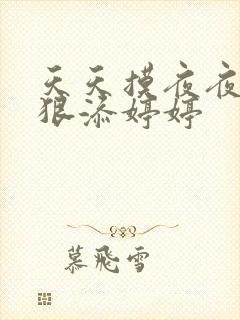 天天摸夜夜
狠添婷婷
慕飛雪